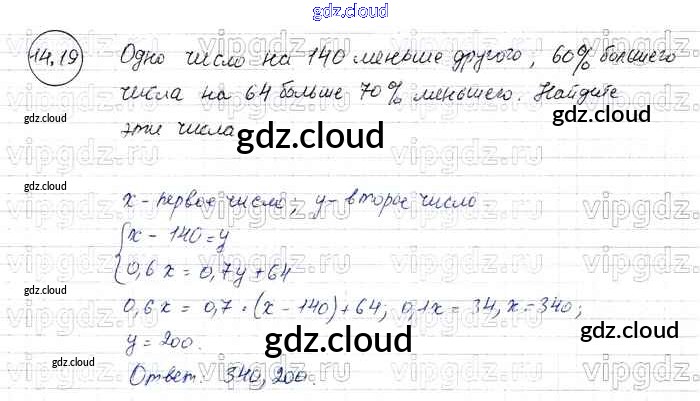 gdz.cloud
14.19 Одно число на 140 меньше другого, 60% большего
числа на 64 больше 70% меньшего. Найдите
gdz.cloud
эти числа
gdz.cloud
gdz.cloud
x - первое число, y - второе число
x - 140 = y
gdz.cloud
gdz.cloud
0,6x = 0,7y + 64
gdz.cloud
0,6x = 0,7 · (x - 140) + 64; 0,1x = 34, x = 340;
y = 200.
gdz.cloud
gdz.cloud
gdz.cloud
Ответ: 340, 200.